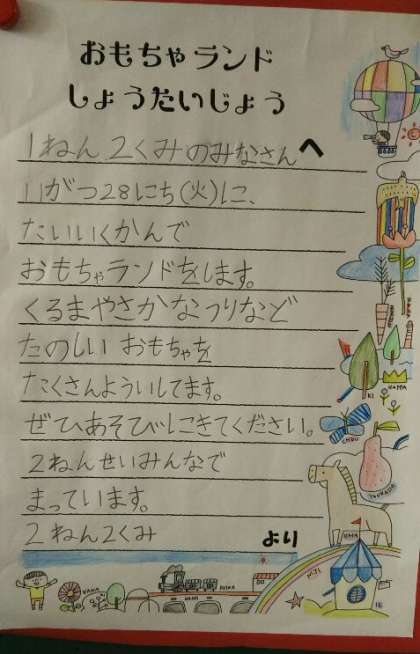 おもちゃランド
しょうたいじょう
1ねん2くみのみなさんへ
11がつ28にち(火)に、
たいいくかんで
おもちゃランドをします。
くるまやさかなつりなど
たのしいおもちゃを
たくさんよういしてます。
ぜひあそびにきてください。
2ねんせいみんなで
まっています。
2ねん2くみ より
KI
HAPPA
UMA
NIJI
HANA